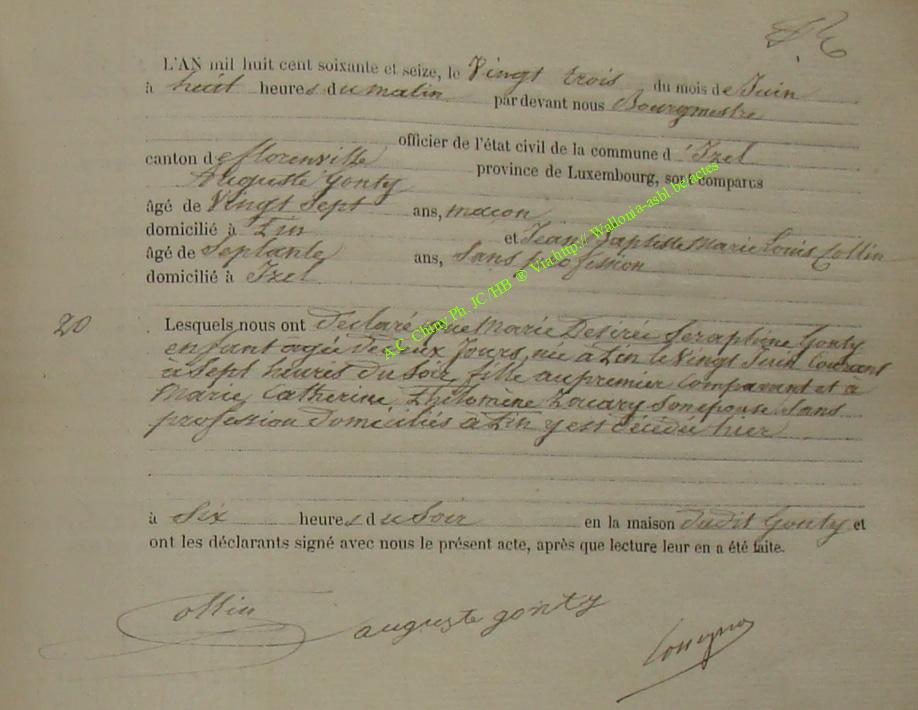 L'AN mil huit cent soixante et seize, le Vingt trois du mois de Juin
à huit heures du matin par devant nous Bourgmestre
officier de l'état civil de la commune d'Izel
canton de florenville province de Luxembourg, sont comparus
Auguste Gonty
âgé de Vingt Sept ans, macon
domicilié à Pin et Jean Baptiste Marie Louis Collin
âgé de Septante ans, Sans profession
domicilié à Izel
20
Lesquels nous ont déclaré que Marie Desirée Seraphine Gonty
enfant agée de deux Jours, née à Pin le Vingt Juin Courant
à Sept heures du Soir, fille au premier Comparant et à
Marie Catherine Philomène Son épouse Sans
profession Domiciliés à Pin y est décédé hier
à Six heures du Soir en la maison dudit Gonty et
ont les déclarants signé avec nous le présent acte, après que lecture leur en a été faite.
Collin auguste gonty
A.C. Chiny Ph. JC/HB ® Via http:// Wallonia-asbl.be/actes